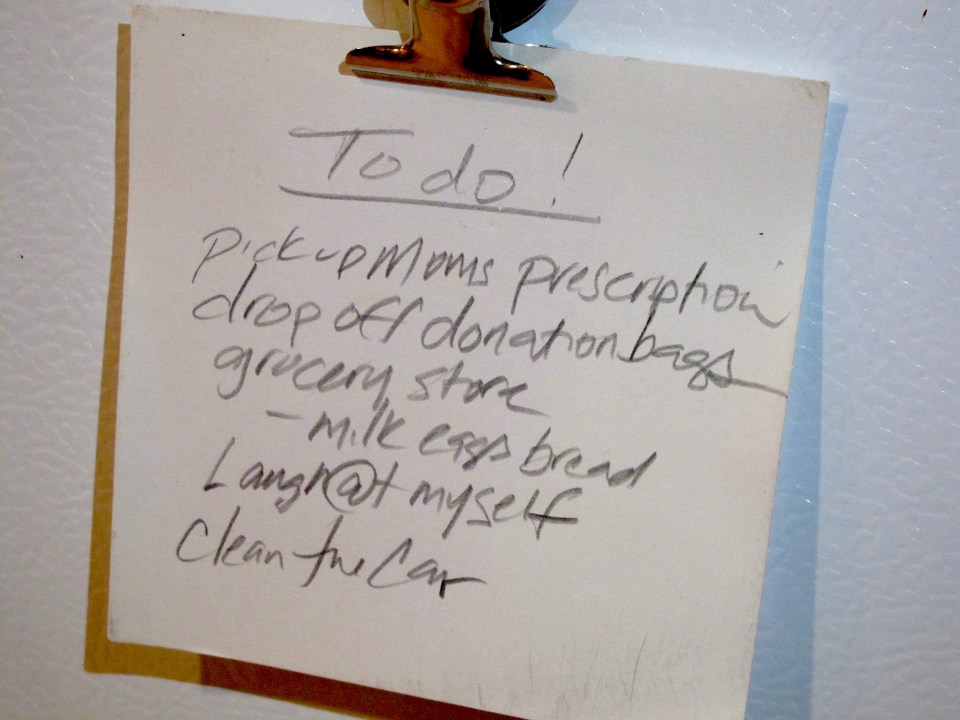 To do!
Pick up Moms prescription
drop off donation bags
grocery store
- milk eggs bread
Laugh @t myself
Clean the Car